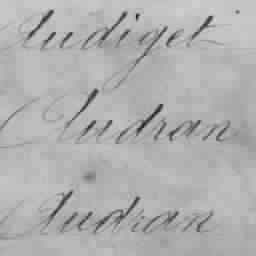 Audiget
Audran
Audran